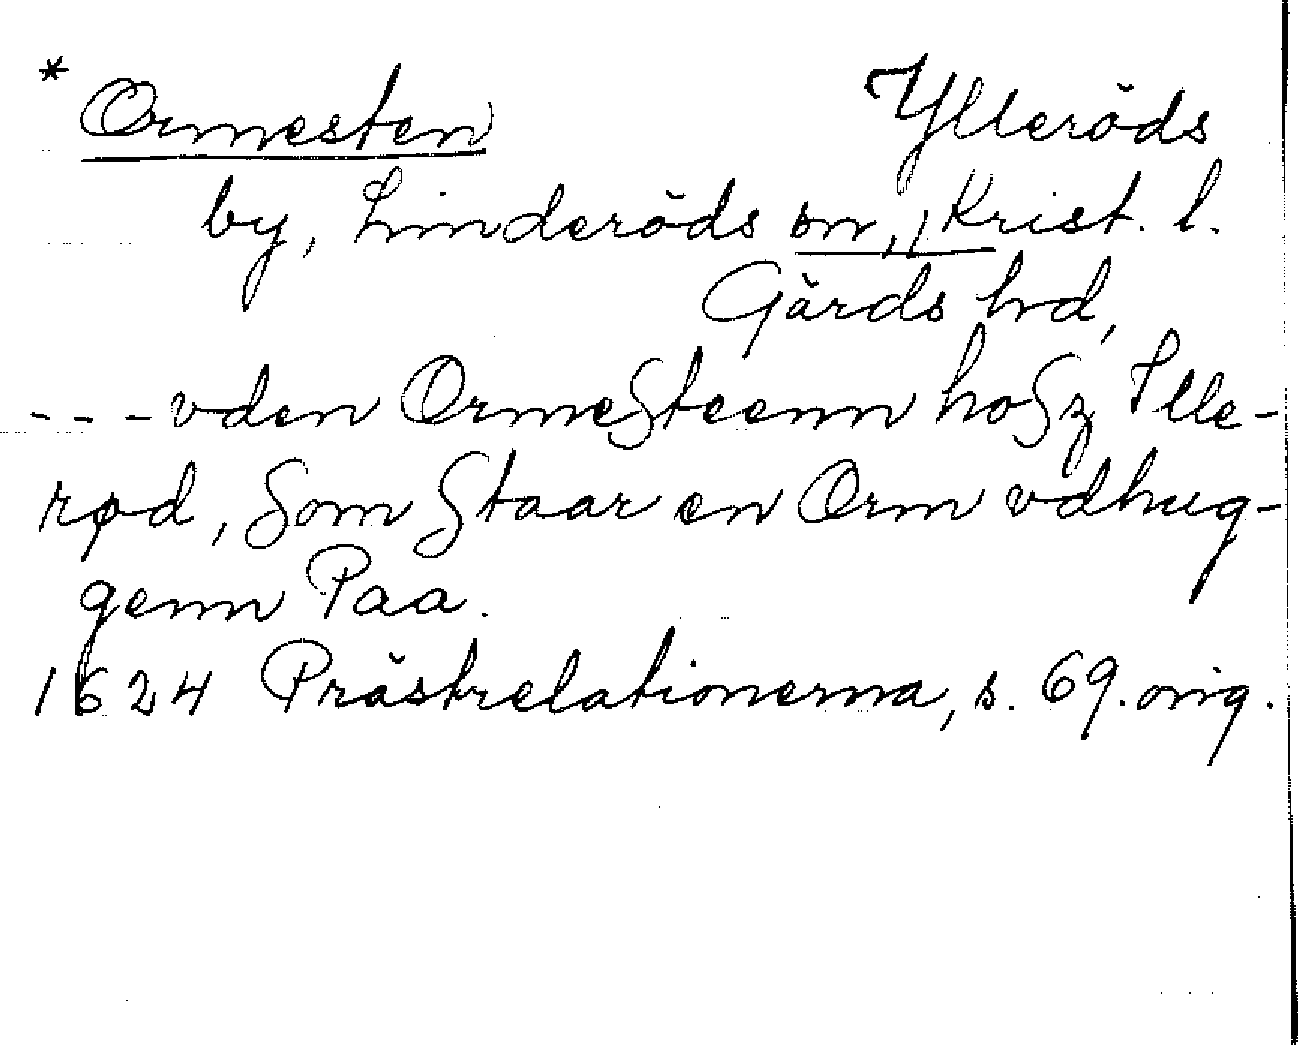 * Ormesten Ylleröds
by, Linderöds sn, Krist. l.
Gärds hd,
- - - vden OrmeSteenn hoSz Ille-
rød, Som Staar en Orm vdhug-
genn Paa.
1624 Prästrelationerna, s. 69. orig.